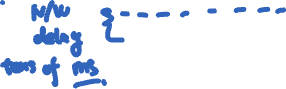 N/w
delay
tens of ms.